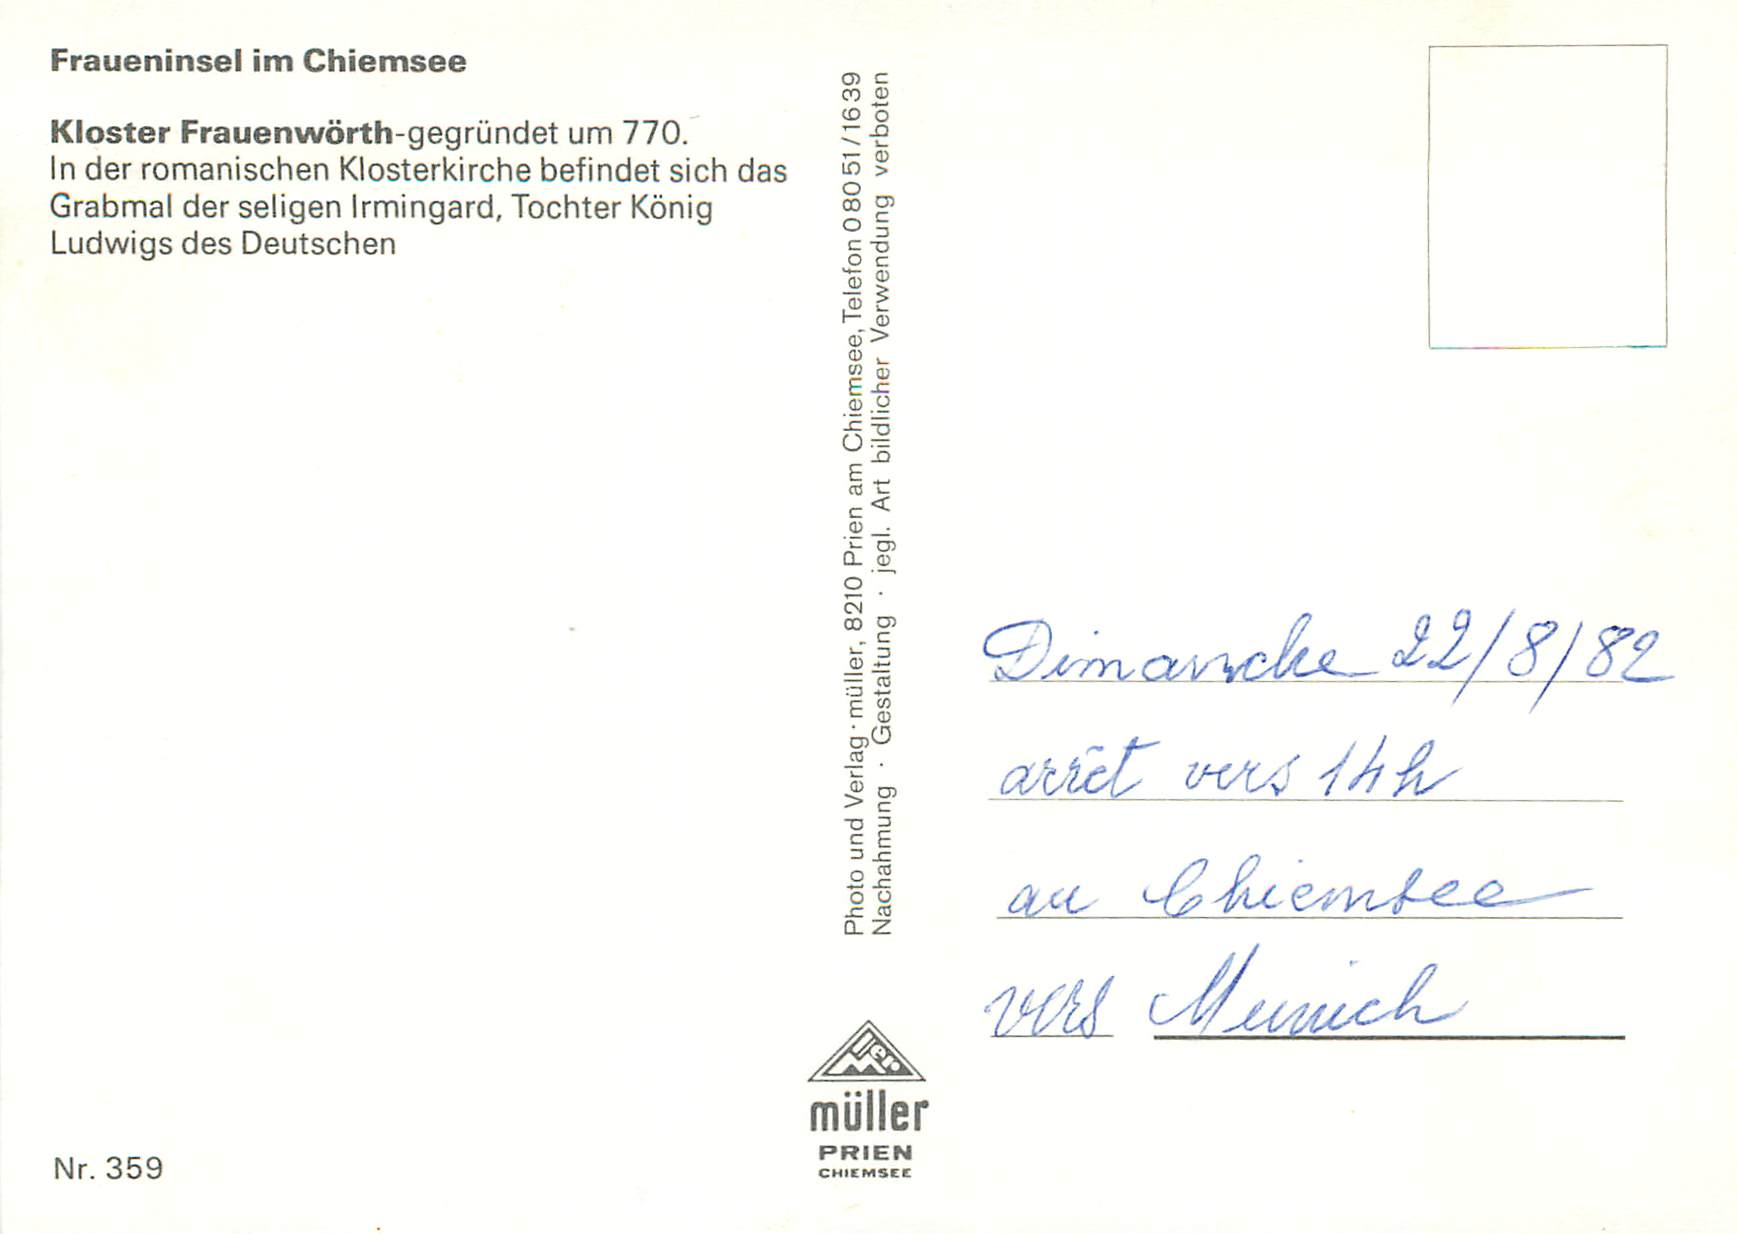 Fraueninsel im Chiemsee
Kloster Frauenwörth-gegründet um 770.
In der romanischen Klosterkirche befindet sich das
Grabmal der seligen Irmingard, Tochter König
Ludwigs des Deutschen
Nr. 359
Photo und Verlag · müller, 8210 Prien am Chiemsee, Telefon 0 80 51/16 39
Nachahmung · Gestaltung · jegl. Art bildlicher Verwendung verboten
Mer.
müller
PRIEN
CHIEMSEE
Dimanche 22/8/82
arrêt vers 14h
au Chiemsee
vers Munich